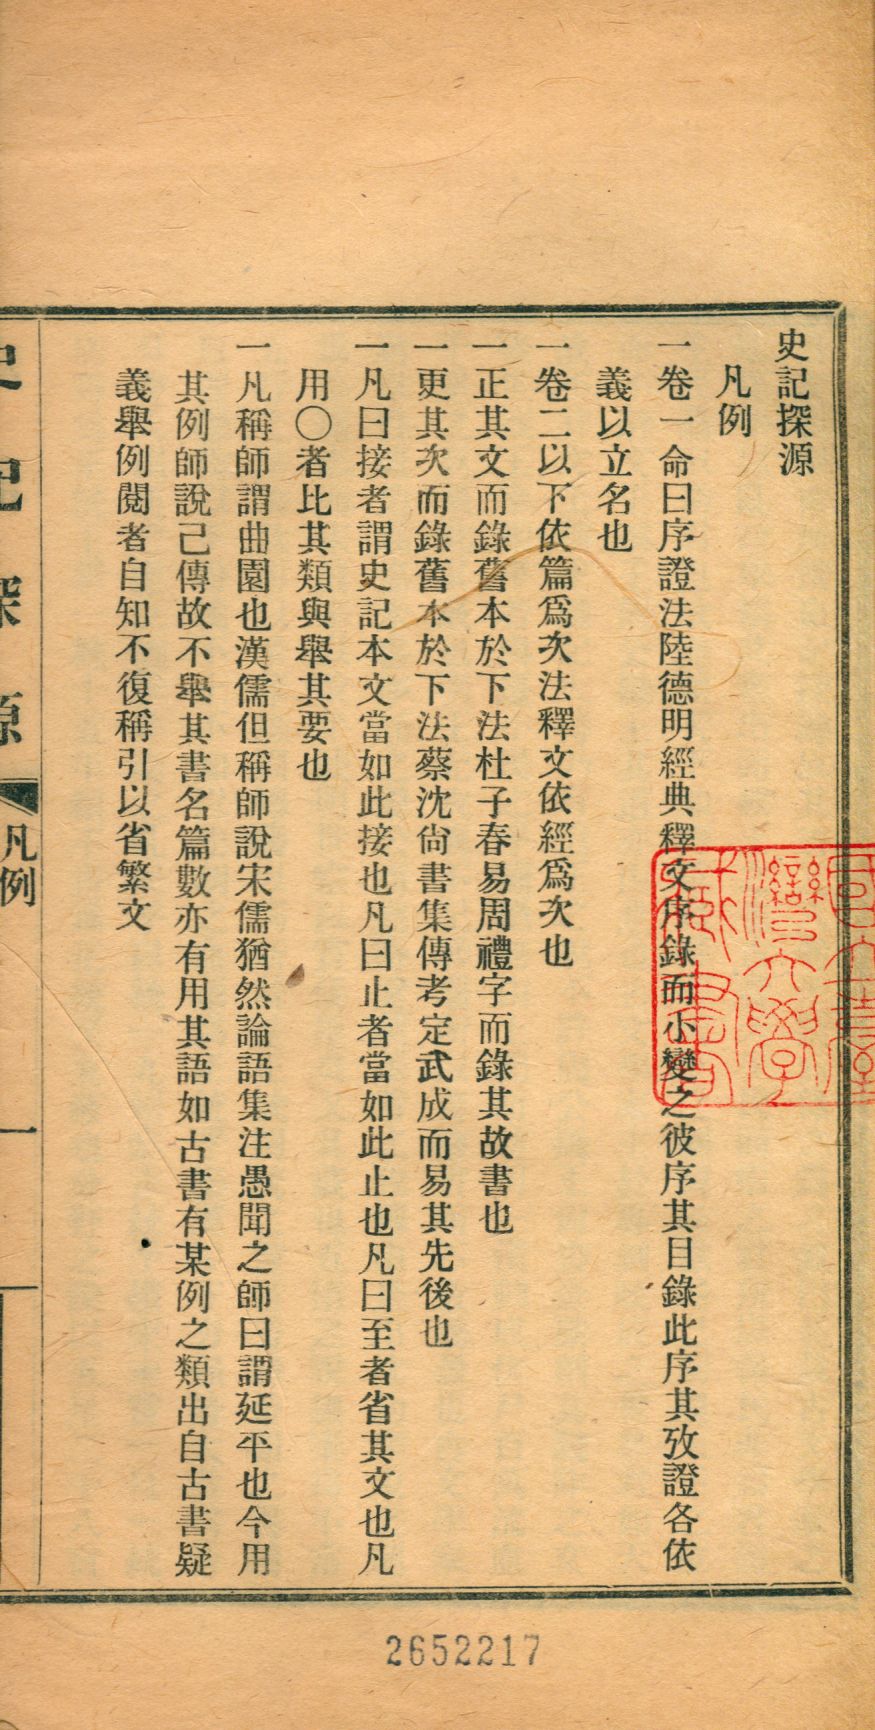 史記探源
凡例
一卷一命曰序證法陸德明經典釋文序錄而小變之彼序其目錄此序其攷證各依
義以立名也
一卷二以下依篇爲次法釋文依經爲次也
一正其文而錄舊本於下法杜子春易周禮字而錄其故書也
一更其次而錄舊本於下法蔡沈尙書集傳考定武成而易其先後也
一凡曰接者謂史記本文當如此接也凡曰止者當如此止也凡曰至者省其文也凡
用〇者比其類與舉其要也
一凡稱師謂曲園也漢儒但稱師說宋儒猶然論語集注愚聞之師曰謂延平也今用
其例師說己傳故不舉其書名篇數亦有用其語如古書有某例之類出自古書疑
義舉例閱者自知不復稱引以省繁文
史記探源
凡例
一
國立臺
灣大學
藏書
2652217